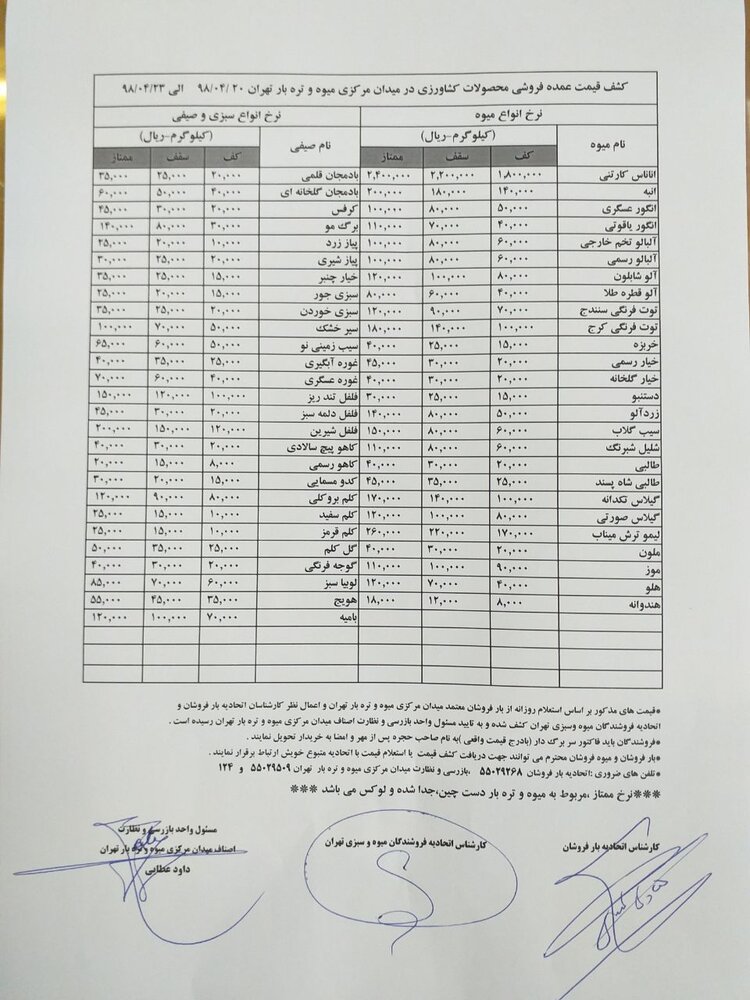 کشف قیمت عمده فروشی محصولات کشاورزی در میدان مرکزی میوه و تره بار تهران ۹۸/۰۴/۲۰ الی ۹۸/۰۴/۲۳
نرخ انواع میوه نرخ انواع سبزی و صیفی
نام میوه (کیلوگرم-ریال) نام صیفی (کیلوگرم-ریال)
کف سقف ممتاز کف سقف ممتاز
اناناس کارتنی ۱,۸۰۰,۰۰۰ ۲,۲۰۰,۰۰۰ ۲,۴۰۰,۰۰۰ بادمجان قلمی ۲۰,۰۰۰ ۲۵,۰۰۰ ۳۵,۰۰۰
انبه ۱۴۰,۰۰۰ ۱۸۰,۰۰۰ ۲۰۰,۰۰۰ بادمجان گلخانه ای ۴۰,۰۰۰ ۵۰,۰۰۰ ۶۰,۰۰۰
انگور عسگری ۵۰,۰۰۰ ۸۰,۰۰۰ ۱۰۰,۰۰۰ کرفس ۲۰,۰۰۰ ۳۰,۰۰۰ ۴۵,۰۰۰
انگور یاقوتی ۴۰,۰۰۰ ۷۰,۰۰۰ ۱۱۰,۰۰۰ برگ مو ۳۰,۰۰۰ ۸۰,۰۰۰ ۱۴۰,۰۰۰
آلبالو تخم خارجی ۶۰,۰۰۰ ۸۰,۰۰۰ ۱۰۰,۰۰۰ پیاز زرد ۱۰,۰۰۰ ۲۰,۰۰۰ ۲۵,۰۰۰
آلبالو رسمی ۶۰,۰۰۰ ۸۰,۰۰۰ ۱۰۰,۰۰۰ پیاز شیری ۲۰,۰۰۰ ۲۵,۰۰۰ ۳۰,۰۰۰
آلو شابلون ۸۰,۰۰۰ ۱۰۰,۰۰۰ ۱۲۰,۰۰۰ خیار چنبر ۱۵,۰۰۰ ۲۵,۰۰۰ ۳۵,۰۰۰
آلو قطره طلا ۴۰,۰۰۰ ۶۰,۰۰۰ ۸۰,۰۰۰ سبزی جور ۱۵,۰۰۰ ۲۰,۰۰۰ ۲۵,۰۰۰
توت فرنگی سنندج ۷۰,۰۰۰ ۹۰,۰۰۰ ۱۲۰,۰۰۰ سبزی خوردن ۲۰,۰۰۰ ۲۵,۰۰۰ ۳۵,۰۰۰
توت فرنگی کرج ۱۰۰,۰۰۰ ۱۴۰,۰۰۰ ۱۸۰,۰۰۰ سیر خشک ۵۰,۰۰۰ ۷۰,۰۰۰ ۱۰۰,۰۰۰
خربزه ۱۵,۰۰۰ ۲۵,۰۰۰ ۴۰,۰۰۰ سیب زمینی نو ۵۰,۰۰۰ ۶۰,۰۰۰ ۶۵,۰۰۰
خیار رسمی ۲۰,۰۰۰ ۳۰,۰۰۰ ۴۵,۰۰۰ غوره آبگیری ۲۵,۰۰۰ ۳۵,۰۰۰ ۴۰,۰۰۰
خیار گلخانه ۲۰,۰۰۰ ۳۰,۰۰۰ ۴۰,۰۰۰ غوره عسگری ۴۰,۰۰۰ ۶۰,۰۰۰ ۷۰,۰۰۰
دستنبو ۱۵,۰۰۰ ۲۵,۰۰۰ ۳۰,۰۰۰ فلفل تند ریز ۱۰۰,۰۰۰ ۱۲۰,۰۰۰ ۱۵۰,۰۰۰
زردآلو ۵۰,۰۰۰ ۸۰,۰۰۰ ۱۴۰,۰۰۰ فلفل دلمه سبز ۲۰,۰۰۰ ۳۰,۰۰۰ ۴۵,۰۰۰
سیب گلاب ۶۰,۰۰۰ ۸۰,۰۰۰ ۱۵۰,۰۰۰ فلفل شیرین ۱۲۰,۰۰۰ ۱۵۰,۰۰۰ ۲۰۰,۰۰۰
شلیل شبرنگ ۶۰,۰۰۰ ۸۰,۰۰۰ ۱۱۰,۰۰۰ کاهو پیچ سالادی ۲۰,۰۰۰ ۳۰,۰۰۰ ۴۰,۰۰۰
طالبی ۲۰,۰۰۰ ۳۰,۰۰۰ ۴۰,۰۰۰ کاهو رسمی ۸,۰۰۰ ۱۵,۰۰۰ ۲۰,۰۰۰
طالبی شاه پسند ۲۵,۰۰۰ ۳۵,۰۰۰ ۴۵,۰۰۰ کدو مسمایی ۱۵,۰۰۰ ۲۰,۰۰۰ ۳۰,۰۰۰
گیلاس تکدانه ۱۰۰,۰۰۰ ۱۴۰,۰۰۰ ۱۷۰,۰۰۰ کلم بروکلی ۸۰,۰۰۰ ۹۰,۰۰۰ ۱۲۰,۰۰۰
گیلاس صورتی ۸۰,۰۰۰ ۱۰۰,۰۰۰ ۱۲۰,۰۰۰ کلم سفید ۱۰,۰۰۰ ۱۵,۰۰۰ ۲۵,۰۰۰
لیمو ترش میناب ۱۷۰,۰۰۰ ۲۲۰,۰۰۰ ۲۶۰,۰۰۰ کلم قرمز ۱۰,۰۰۰ ۱۵,۰۰۰ ۲۵,۰۰۰
ملون ۲۰,۰۰۰ ۳۰,۰۰۰ ۴۰,۰۰۰ گل کلم ۲۵,۰۰۰ ۳۵,۰۰۰ ۵۰,۰۰۰
موز ۹۰,۰۰۰ ۱۰۰,۰۰۰ ۱۱۰,۰۰۰ گوجه فرنگی ۲۰,۰۰۰ ۳۰,۰۰۰ ۴۰,۰۰۰
هلو ۴۰,۰۰۰ ۷۰,۰۰۰ ۱۲۰,۰۰۰ لوبیا سبز ۶۰,۰۰۰ ۷۰,۰۰۰ ۸۵,۰۰۰
هندوانه ۸,۰۰۰ ۱۲,۰۰۰ ۱۸,۰۰۰ هویج ۳۵,۰۰۰ ۴۵,۰۰۰ ۵۵,۰۰۰
بامیه ۷۰,۰۰۰ ۱۰۰,۰۰۰ ۱۲۰,۰۰۰
*قیمت های مذکور بر اساس استعلام روزانه از بار فروشان معتمد میدان مرکزی میوه و تره بار تهران و اعمال نظر کارشناسان اتحادیه بار فروشان و
اتحادیه فروشندگان میوه وسبزی تهران کشف شده و به تایید مسئول واحد بازرسی و نظارت اصناف میدان مرکزی میوه و تره بار تهران رسیده است .
*فروشندگان باید فاکتور سر برگ دار (بادرج قیمت واقعی )به نام صاحب حجره پس از مهر و امضا به خریدار تحویل نمایند .
*بار فروشان و میوه فروشان محترم می توانند جهت دریافت کشف قیمت یا استعلام قیمت با اتحادیه متبوع خویش ارتباط برقرار نمایند .
*تلفن های ضروری :اتحادیه بار فروشان ۵۵۰۲۹۲۶۸ ،بازرسی و نظارت میدان مرکزی میوه و تره بار تهران ۵۵۰۲۹۵۰۹ و ۱۲۴
***نرخ ممتاز ،مربوط به میوه و تره بار دست چین،جدا شده و لوکس می باشد ***
کارشناس اتحادیه بار فروشان
کارشناس اتحادیه فروشندگان میوه و سبزی تهران
مسئول واحد بازرسی و نظارت
اصناف میدان مرکزی میوه و تره بار تهران
داود عطایی